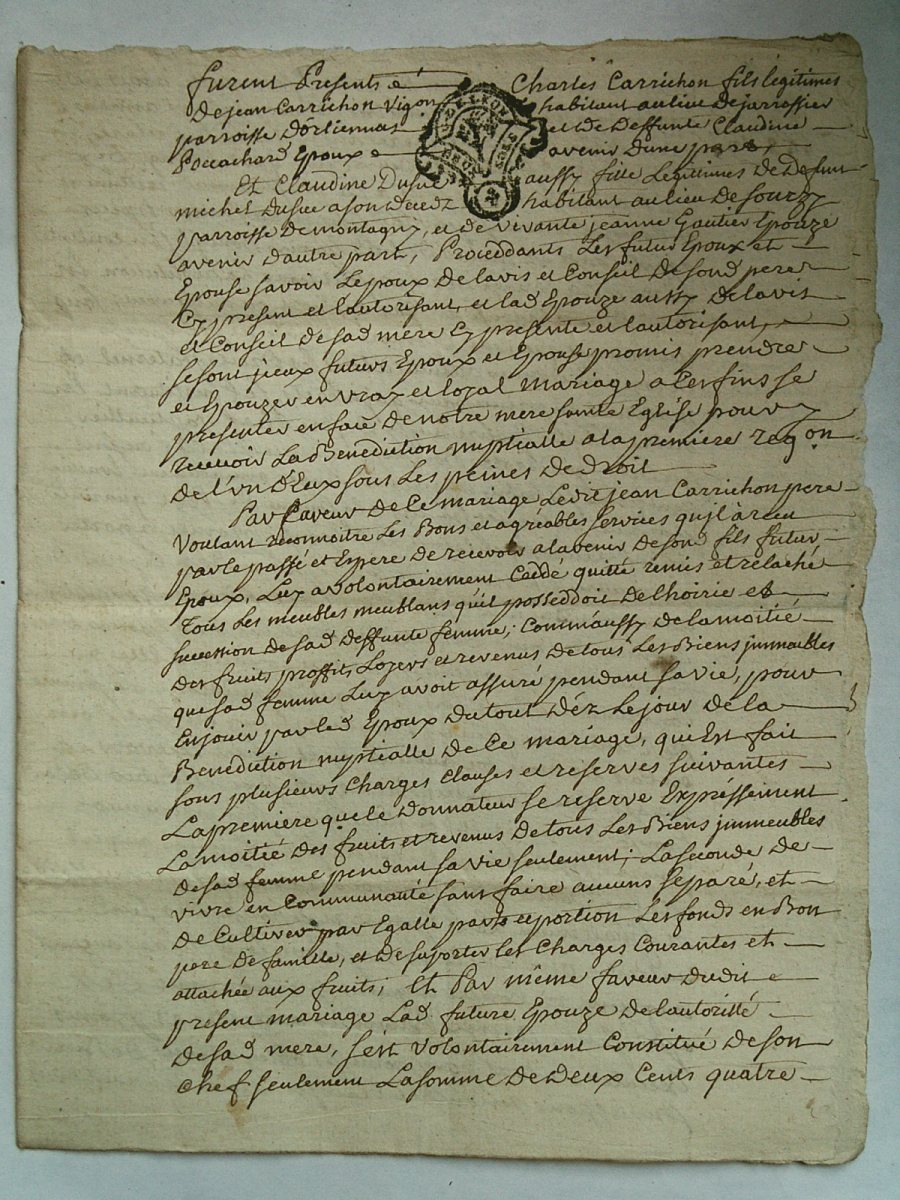 furent Presents Charles Carrichon fils legitimes
de jean Carrichon Vigon habitant au lieu de jarrossier
parroisse d'orliennas et de deffunte Claudine
Epoux avenir dune part,
Et Claudine Dusuc aussy fille Legittimes de Defunt
michel Dusuc a son decedz habitant au lieu de sourzy
parroisse de montagny, et de vivante jeanne Gautier Epouze
avenir dautre part, Proceddants Les futur Epoux et
Epouse savoir Lepoux de lavis et Conseil de sond pere
Cy present et l'autorisant, et lad Epouze aussy de lavis
et Conseil de sad mere Cy presente et l'autorisant,
se sont jceux futurs Epoux et Epouse promis prendre
et Epouzer en vray et loyal mariage a Ces fins se
presenter en face de notre mere sainte Eglise pour y
recevoir La Benediction nuptialle a la premiere reqon
de l'vn d'Eux sous Les peines de droit
Par faveur de Ce mariage Ledit jean Carrichon pere
Voulant reconnoitre Les Bons et agréables services qu'jl à receu
par le passé et Espere de recevoir a lavenir de sond fils futur
Epoux, Luy a volontairement Ceddé quitté remis et relaché
Tous Les meubles meublans qu'il posseddoit de lhoirie et
succession de sad deffunte femme, Comm'aussy de la moitié
des fruits proffits Loyers et revenus de tous Les Biens jmmeubles
que sad femme Luy avoit assuré pendant sa vie, pour
En jouir par led Epoux du tout déz Le jour de la
Benediction nuptialle de Ce mariage, qui Est fait
sous plusieurs Charges Clauses et reserves suivantes
La premiere que le donnateur se reserve Expréssement
La moitié des fruits et revenus de tous Les Biens jmmeubles
de sad femme pendant sa vie seulement; La seconde de
vivre en Communauté sans faire aucuns separé, et
de Cultiver par Egalle portion Les fonds en Bon
pere de famille, et de suporter les Charges Courantes et
attachée aux fruits; Et Par même faveur dudit
present mariage Lad future Epouze de l'autorité
de sad mere, s'est Volontairement Constitué de son
Chef seulement La somme de deux Cents quatre